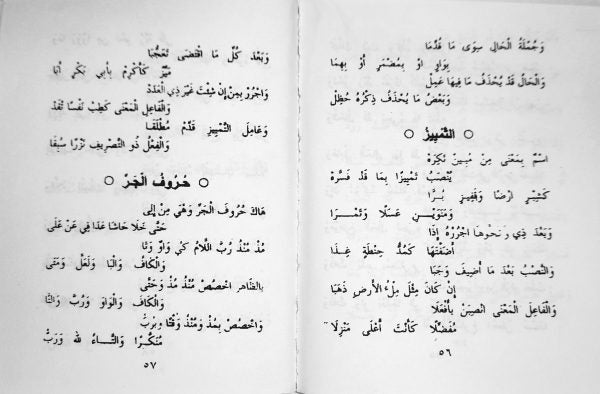 وَجُمْلَةُ الْحَالِ سِوَى مَا قُدِّمَا
بِوَاوٍ اوْ بِمُضْمَرٍ أَوْ بِهِمَا
وَالْحَالُ قَدْ يُحْذَفُ مَا فِيهَا عَمِلْ
وَبَعْضُ مَا يُحْذَفُ ذِكْرُهُ حُظِلْ
التَّمْيِيزُ
اسْمٌ بِمَعْنَى مِنْ مُبِينٌ نَكِرَهْ
يُنْصَبُ تَمْيِيزًا بِمَا قَدْ فَسَّرَهْ
كَشِبْرٍ ارْضًا وَقَفِيزٍ بُرًّا
وَمَنَوَيْنِ عَسَلًا وَتَمْرًا
وَبَعْدَ ذِي وَنَحْوِهَا اجْرُرْهُ إِذَا
أَضَفْتَهَا كَمُدُّ حِنْطَةٍ غِذَا
وَالنَّصْبُ بَعْدَ مَا أُضِيفَ وَجَبَا
إِنْ كَانَ مِثْلَ مِلْءُ الأَرْضِ ذَهَبَا
وَالْفَاعِلَ الْمَعْنَى انْصِبَنْ بِأَفْعَلَا
مُفَضِّلًا كَأَنْتَ أَعْلَى مَنْزِلَا
٥٦
وَبَعْدَ كُلِّ مَا اقْتَضَى تَعَجُّبَا
مَيِّزْ كَأَكْرِمْ بِأَبِي بَكْرٍ أَبَا
وَاجْرُرْ بِمِنْ إِنْ شِئْتَ غَيْرَ ذِي الْعَدَدْ
وَالْفَاعِلِ الْمَعْنَى كَطِبْ نَفْسًا تُفَدْ
وَعَامِلَ التَّمْيِيزِ قَدِّمْ مُطْلَقَا
وَالْفِعْلُ ذُو التَّصْرِيفِ نَزْرًا سُبِقَا
حُرُوفُ الْجَرِّ
هَاكَ حُرُوفَ الْجَرِّ وَهْيَ مِنْ إِلَى
حَتَّى خَلَا حَاشَا عَدَا فِي عَنْ عَلَى
مُذْ مُنْذُ رُبَّ اللَّامُ كَيْ وَاوٌ وَتَا
وَالْكَافُ وَالْبَا وَلَعَلَّ وَمَتَى
بِالظَّاهِرِ اخْصُصْ مُنْذُ مُذْ وَحَتَّى
وَالْكَافَ وَالْوَاوَ وَرُبَّ وَالتَّا
وَاخْصُصْ بِمُذْ وَمُنْذُ وَقْتًا وَبِرُبّْ
مُنَكَّرًا وَالتَّاءُ لِلهِ وَرَبّْ
٥٧